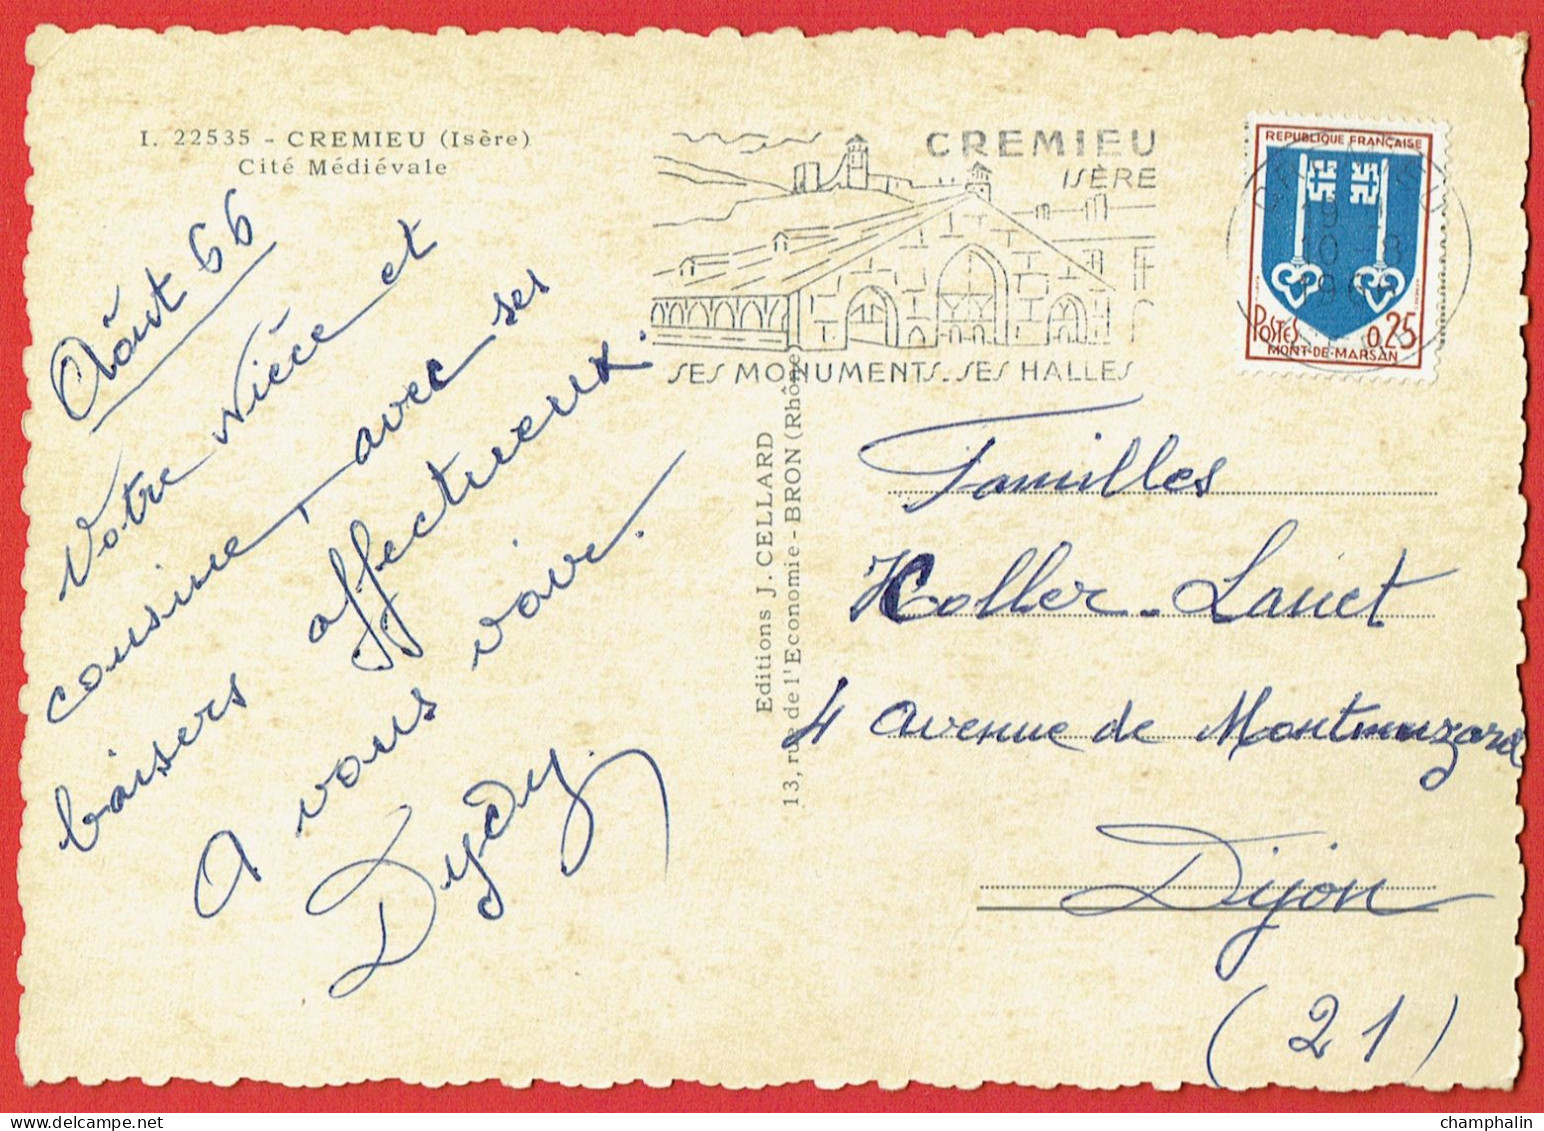 I. 22535 - CREMIEU (Isère)
Cité Médiévale
Août 66
Votre Nièce et
cousine, avec ses
baisers affectueux.
A vous voir.
Dydy.
CREMIEU
ISÈRE
SES MONUMENTS. SES HALLES
REPUBLIQUE FRANÇAISE
POSTES 0,25
MONT-DE-MARSAN
10 - 8
Editions J. CELLARD
13, rue de l'Economie - BRON (Rhône)
Familles
Koller - Lanet
4 avenue de Montmuzard
Dijon
(21)
champhalin